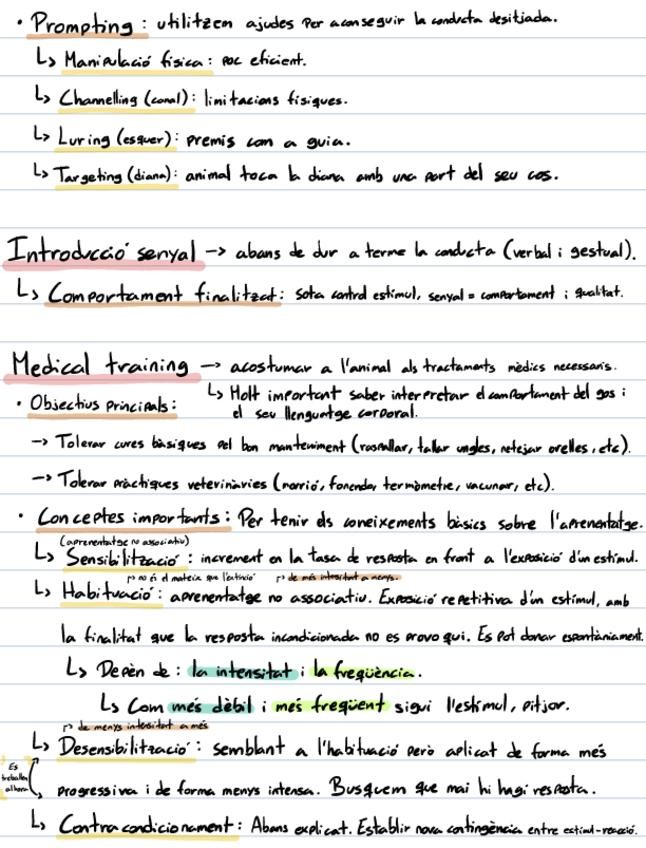 • Prompting : utilitzem ajudes per aconseguir la conducta desitjada.
↳ Manipulació física : poc eficient.
↳ Channelling (canal) : limitacions físiques.
↳ Luring (esquer) : premis com a guia.
↳ Targeting (diana) : animal toca la diana amb una part del seu cos.
Introducció senyal → abans de dur a terme la conducta (verbal i gestual).
↳ Comportament finalitzat : sota control estímul, senyal = comportament i qualitat.
Medical training → acostumar a l'animal als tractaments mèdics necessaris.
↳ Molt important saber interpretar el comportament del gos i
• Objectius principals :
el seu llenguatge corporal.
→ Tolerar cures bàsiques pel bon manteniment (raspallar, tallar ungles, netejar orelles, etc).
→ Tolerar pràctiques veterinàries (morrió, fonendo, termòmetre, vacunar, etc).
• Conceptes importants : Per tenir els coneixements bàsics sobre l'aprenentatge.
(aprenentatge no associatiu)
↳ Sensibilització : increment en la tasa de resposta en front a l'exposició d'un estímul.
↱ no és el mateix que l'extinció ↱ de més intensitat a menys.
↳ Habituació : aprenentatge no associatiu. Exposició repetitiva d'un estímul, amb
la finalitat que la resposta incondicionada no es provoqui. Es pot donar espontàniament.
↳ Depèn de : la intensitat i la freqüència.
↳ Com més dèbil i més freqüent sigui l'estímul, pitjor.
↱ de menys intensitat a més
↳ Desensibilització : semblant a l'habituació però aplicat de forma més
Es treballen alhora
progressiva i de forma menys intensa. Busquem que mai hi hagi resposta.
↳ Contracondicionament : Abans explicat. Establir nova contingència entre estímul-reacció.